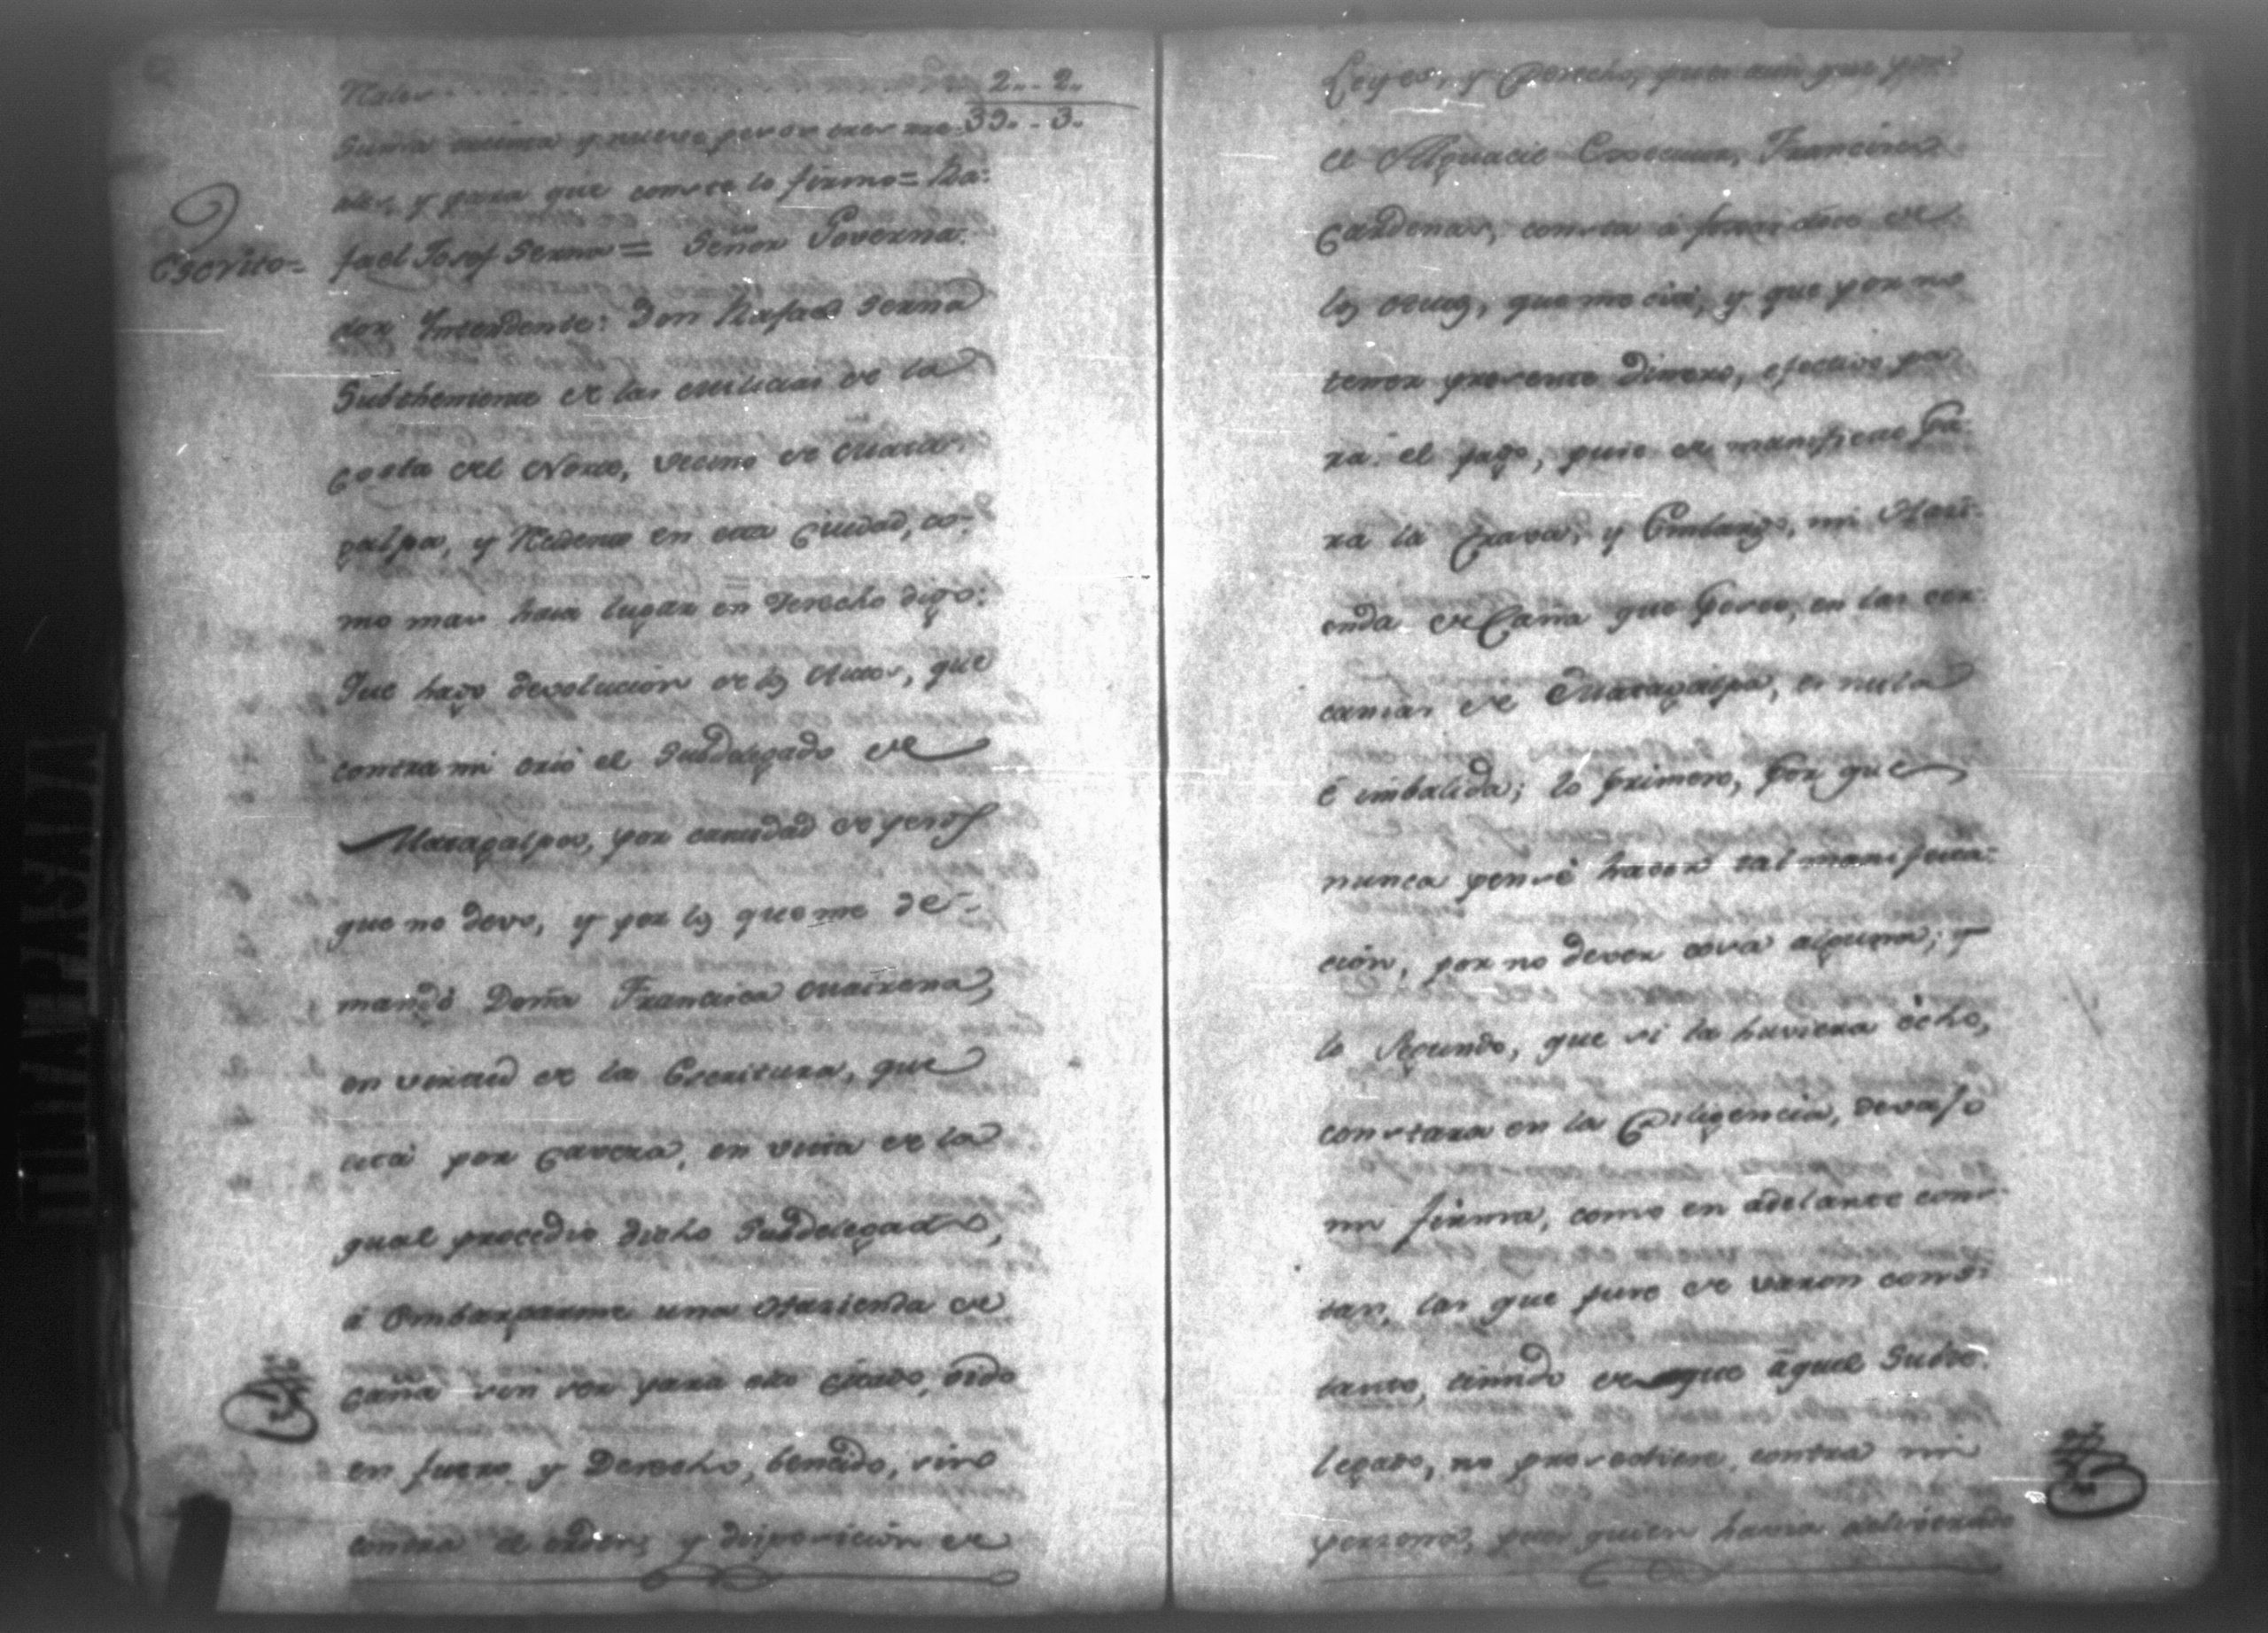 Rales 2,, . 2,,
Suma treinta y nueve pesos tres rre- 39,, . 3,,
ales, y para que conste lo firmo = Ra:
fael Josef Serna = Señor Governa:
Escrito=
dor Yntendente: Don Rafael Serna
Subtheniente de las Milicias de la
Costa del Norte, vecino de Mata:
galpa, y Recidente en esta Ciudad, co-
mo mas haia lugar en Derecho digo:
Que hago devolucion de los Autos, que
contra mi crió el Subdelegado de
Matagalpa, por cantidad de pesos
que no devo, y por los que me de-
mandó Doña Francisca Mairena,
en virtud de la Escritura, que
está por cavesa, en vista de la
qual procedio dicho Subdelegado,
á Embargarme una Hazienda de
Caña sin ser para ello citado, oido
en fuero y Derecho, bencido, sino
contra el orden, y disposicion de
Leyes, y Derecho, pues aun que por
el Alguacil Executor, Francisco
Cardenas, consta á foxas dose de
los Autos, que me citó, y que por no
tener presente Dinero, efectivo pa
ra el pago, puse de manifiesto Pa:
ra la Trava, y Embargo, mi Hazi:
enda de Caña que Poseo, en las cer:
canias de Matagalpa, es nula
é imbalida; lo primero, Por que
nunca pensé hacer tal manifesta:
cion, por no dever cosa alguna; y
lo Segundo, que si la huviera écho,
constara en la Diligencia, devajo
mi firma, como en adelante cons-
tan, las que puse de varon cons-
tante, siendo de que aquel Subde:
legado, no procediese, contra mi
persona, pues quien havia